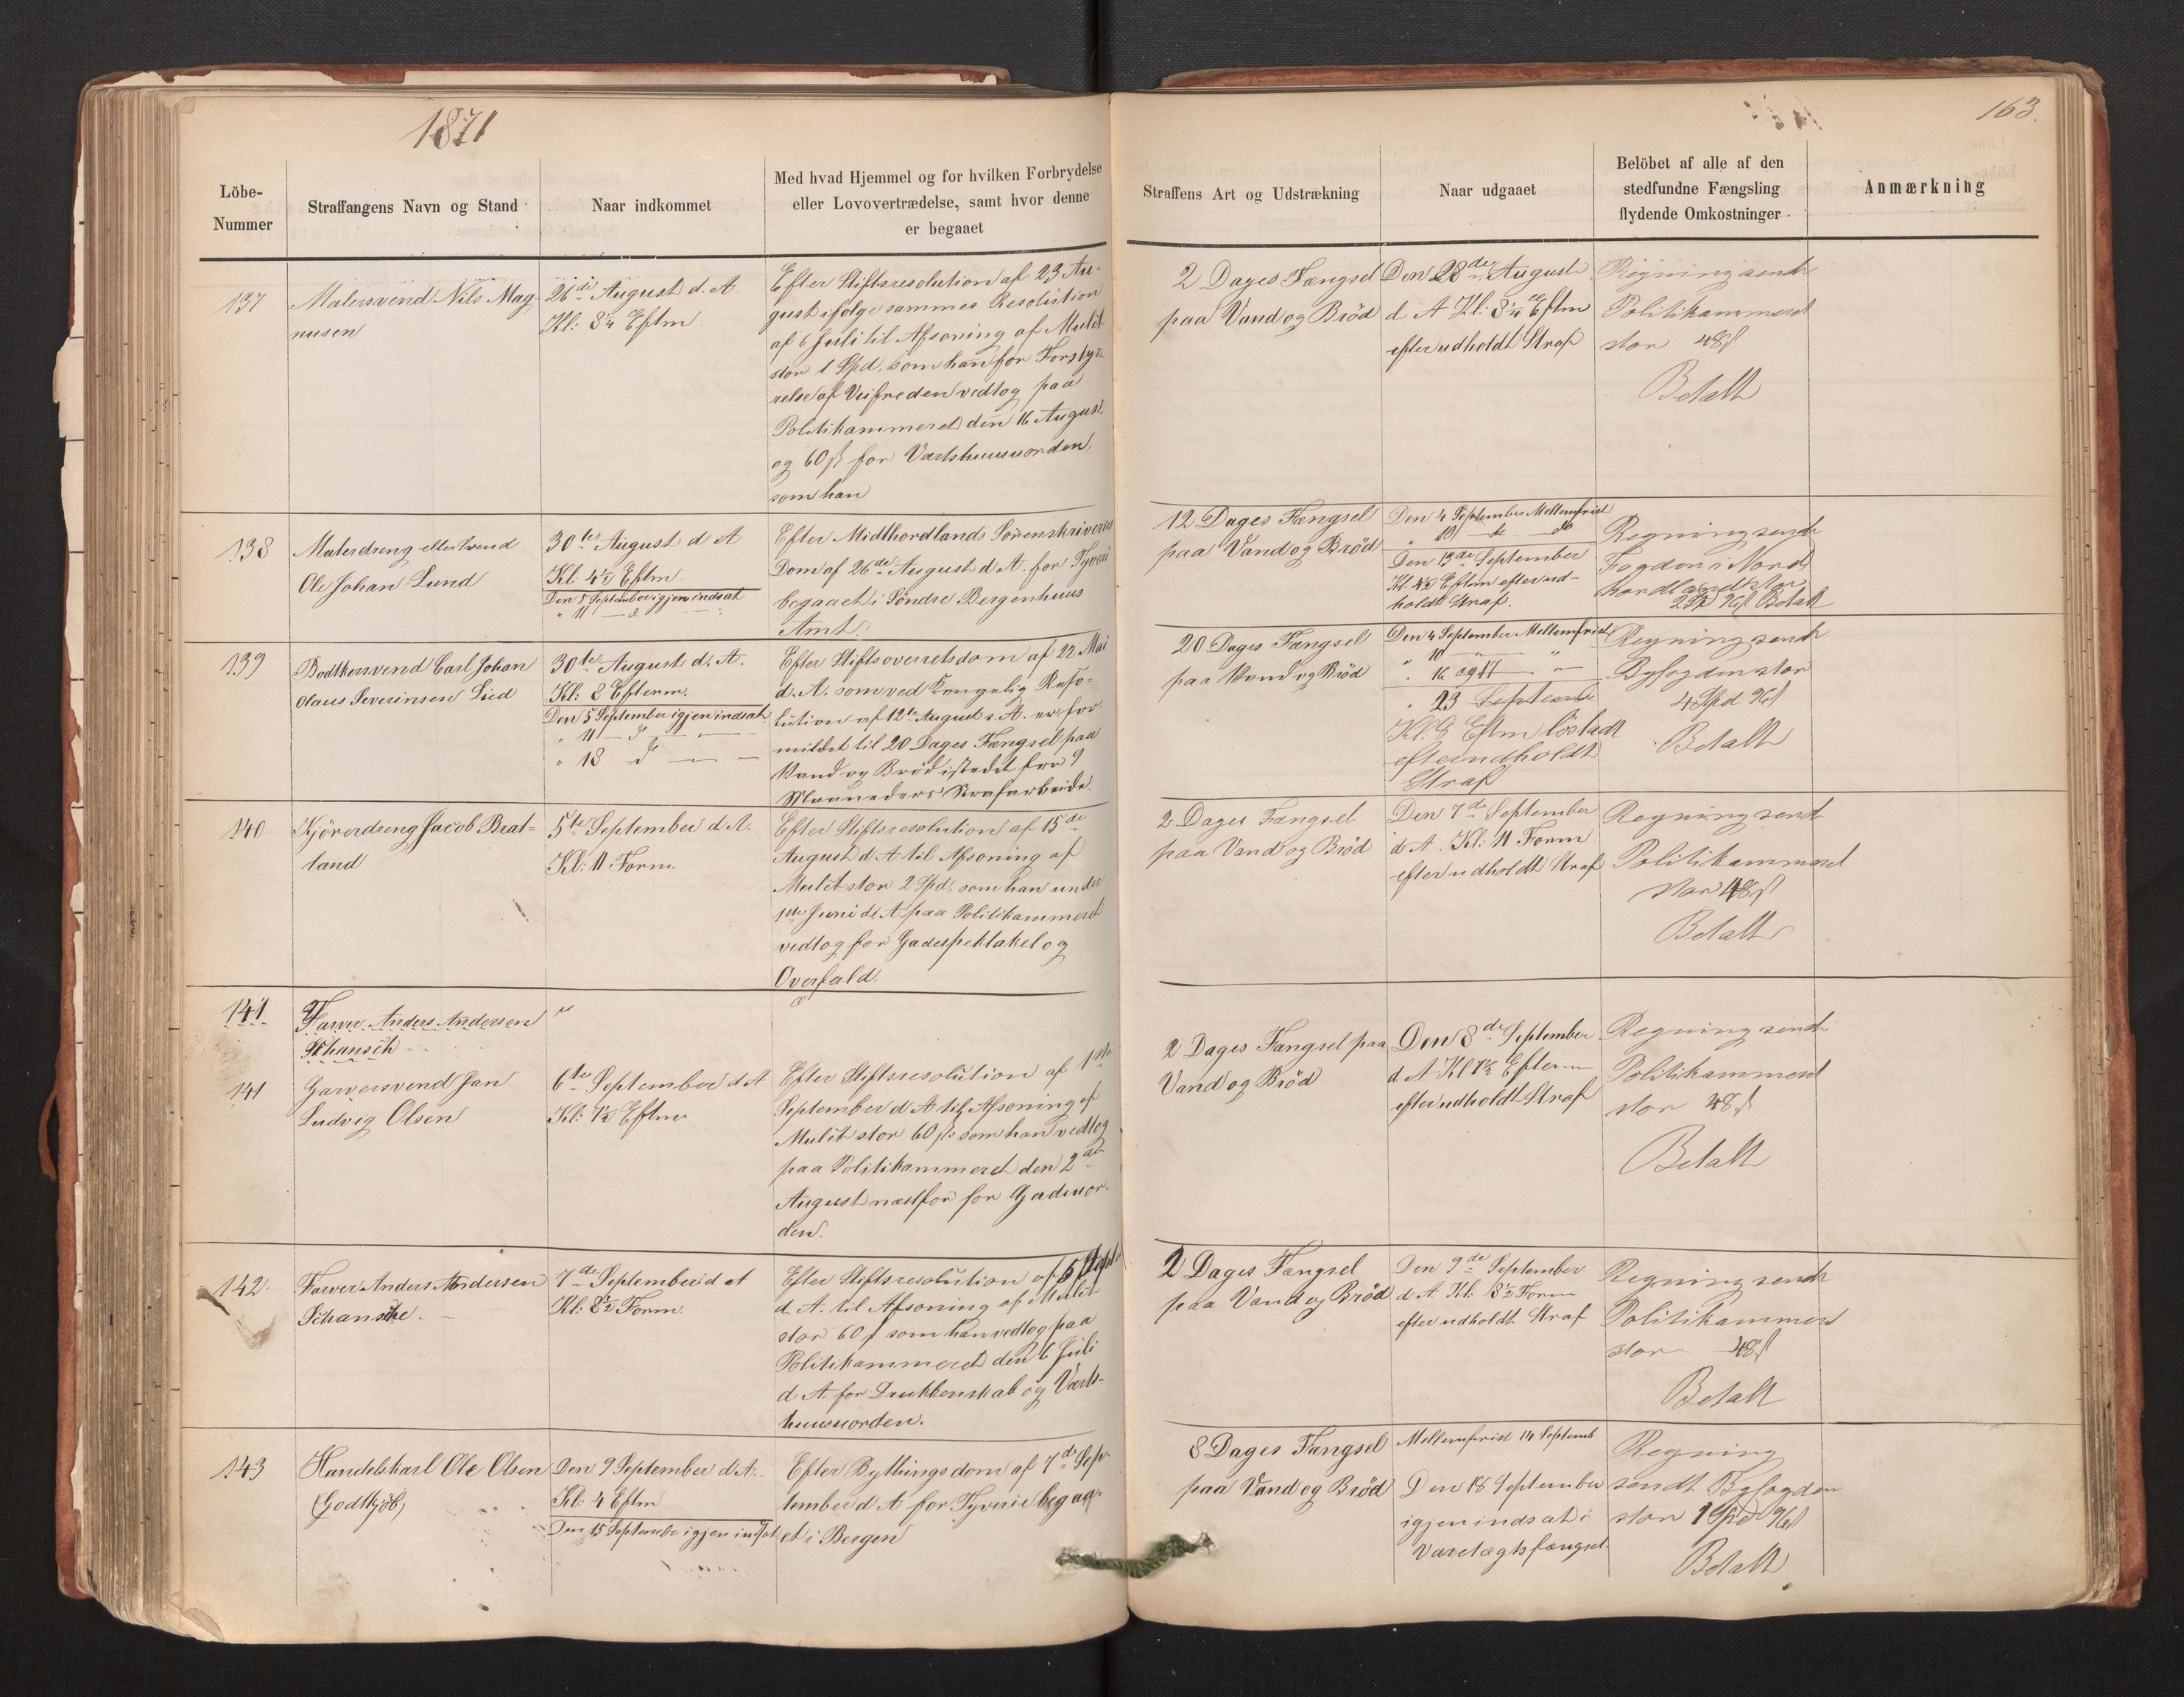 1871
163.
Löbe-
Nummer
Straffangens Navn og Stand
Naar indkommet
Med hvad Hjemmel og for hvilken Forbrydelse
eller Lovovertrædelse, samt hvor denne
er begaaet
Straffens Art og Udstrækning
Naar udgaaet
Belöbet af alle af den
stedfundne Fængsling
flydende Omkostninger
Anmærkning
137
Malersvend Nils Mag-
nusen
26de August d. A.
Kl: 8¼ Eftm.
Efter Stiftsresolution af 23 Au-
gust ifølge sammes Resolution
af 6 Juli til Afsoning af Mulct
stor 1 Spd, som han for Forstyr-
relse af Veifreden vedtog paa
Politikammeret den 16 August
og 60 ß for Værtshuusuorden,
som han
2 Dages Fængsel
paa Vand og Bröd
Den 28de August
d A Kl: 8¼ Eftm
efter udholdt Straf
Regning sendt
Politikammeret
stor 48 ß
Betalt
138
Malerdreng eller Svend
Ole Johan Lund
30te August d A
Kl: 4½ Eftm.
Den 5 September igjen indsat
" 11 — d — "
Efter Midthordlands Sorenskriveries
Dom af 26de August d A. for Tyveri
begaaet i Söndre Bergenhuus
Amt.
12 Dages Fængsel
paa Vand og Bröd
Den 4 September Mellemfrist
" 10 — d — do
Den 13de September
Kl 4½ Eftm efter ud-
holdt Straf.
Regning sendt
Fogden i Nord
hordland stor
2 Sp 96 ß Betalt
139
Bødkersvend Carl Johan
Olaus Severinsen Lied
30te August d. A.
Kl: 8 Efterm.
Den 5 September igjen indsat
" 11 — d — —
" 18 d — —
Efter Stiftsoverretsdom af 22 Mai
d. A. som ved Kongelig Reso-
lution af 12te August s. A. er for-
mildet til 20 Dages Fængsel paa
Vand og Bröd istedet for 9
Maaneders Strafarbeide.
20 Dages Fængsel
paa Vand og Bröd
Den 4 September Mellemfrist
" 10 — "
" 16 og 17 — "
" 23 September
Kl. 9 Eftm lösladt
efter udholdt
Straf
Regning sendt
Byfogden stor
4 Spd 96 ß
Betalt
140
Kjörerdreng Jacob Brat-
land
5te September d A.
Kl: 11 Form.
Efter Stiftsresolution af 15de
August d A til Afsoning af
Mulct stor 2 Spd. som han under
1ste Juni d. A paa Politikammeret
vedtog for Gadespektakel og
Overfald.
2 Dages Fængsel
paa Vand og Bröd
Den 7de September
d A. Kl: 11 Form
efter udholdt Straf
Regning sendt
Politikammeret
stor 48 ß
Betalt
141
Farver Anders Andersen
Schansch
141
Garversvend Jan
Ludvig Olsen
6te September d A
Kl: 7½ Eftm
Efter Stiftsresolution af 1ste
September d A til Afsoning af
Mulct stor 60 ß som han vedtog
paa Politikammeret den 2de
August næstfor for Gadeuor-
den.
2 Dages Fængsel paa
Vand og Bröd
Den 8de September
d A Kl 7½ Efterm
efter udholdt Straf
Regning sendt
Politikammeret
stor 48 ß
Betalt
142.
Farver Anders Andersen
Schansche.
7de September d A
Kl: 8½ Form.
Efter Stiftsresolution af 5 Septr
d. A. til Afsoning af Mulct
stor 60 ß som han vedtog paa
Politikammeret den 6 Juli
d A. for Drukkenskab og Værts-
huusuorden.
2 Dages Fængsel
paa Vand og Bröd
Den 9de September
d A. Kl: 8½ Form
efter udholdt Straf
Regning sendt
Politikammeret
stor 48 ß
Betalt
143
Handelskarl Ole Olsen
(Godtkjöb)
Den 9 September d A.
Kl: 4 Eftm
Den 15 September igjen indsat
Efter Bythingsdom af 7de Sep-
tember d A for Tyverie begaa-
et i Bergen
8 Dages Fængsel
paa Vand og Bröd
Mellemfrist 14 Septemb
Den 18 September
igjen indsat i
Varetægtsfængsel.
Regning
sendt Byfogden
stor 1 Spd 96 ß
Betalt